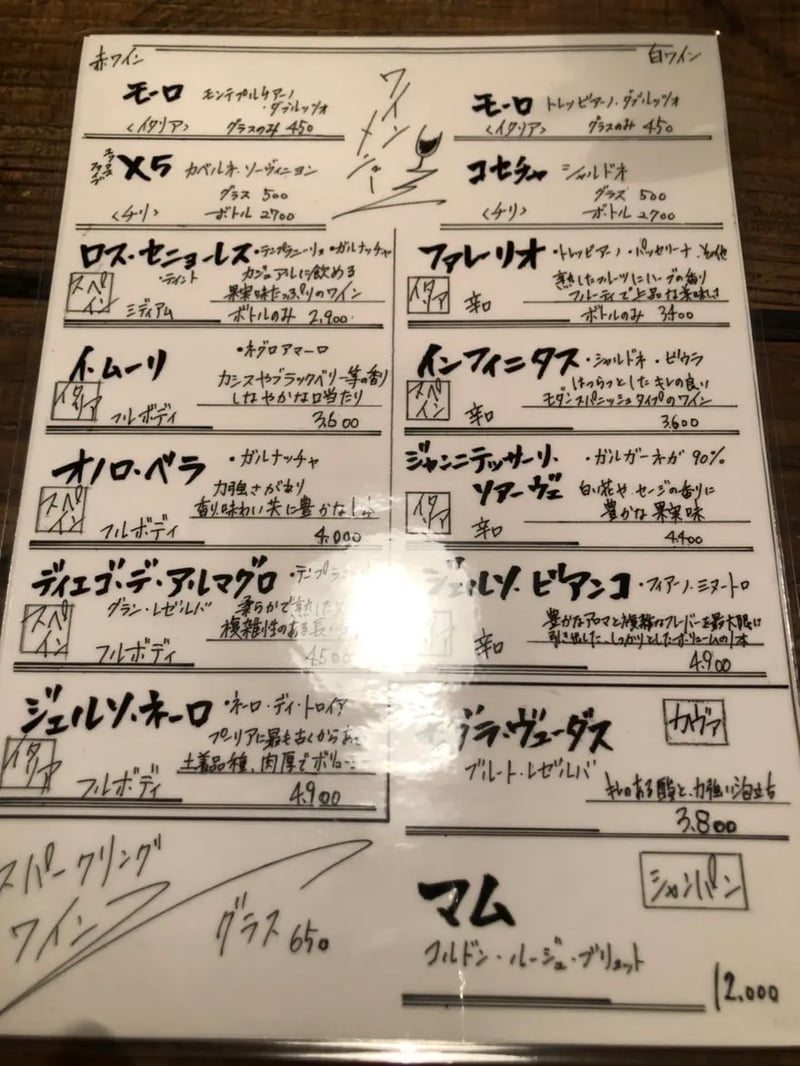 赤ワイン
白ワイン
ワインメニュー
モーロ モンテプルチアーノ
・ダブルッツォ
〈イタリア〉 グラスのみ 450
エックスファイブ X5 カベルネ・ソーヴィニヨン
グラス 500
〈チリ〉 ボトル 2700
ロス・セニョーレス ・テンプラニーリョ ・ガルナッチャ
・ティント
スペイン カジュアルに飲める
果実味たっぷりのワイン
ミディアム ボトルのみ 2,900
イ・ムーリ ・ネグロアマーロ
イタリア カシスやブラックベリー等の香り
しなやかな口当たり
フルボディ 3,600
オノロ・ベラ ・ガルナッチャ
スペイン 力強さがあり
香り、味わい共に豊かな1本
フルボディ 4,000
ディエゴ・デ・アルマグロ ・テンプラ
グラン・レゼルバ
スペイン 柔らかで熟した
複雑性のある長い
フルボディ 4,500
ジェルソ・ネーロ ・ネーロ・ディ・トロイア
イタリア プーリアに最も古くからある
土着品種、肉厚でボリュー
フルボディ 4,900
モーロ トレッビアーノ・ダブルッツォ
〈イタリア〉 グラスのみ 450
コセチャ シャルドネ
グラス 500
〈チリ〉 ボトル 2,700
ファレーリオ ・トレッビアーノ ・パッセリーナ その他
イタリア 熟したフルーツにハーブの香り
フルーティで上品な美味しさ
辛口 ボトルのみ 3400
インフィニタス ・シャルドネ ・ビウラ
スペイン はつらつとしたキレの良い
モダンスパニッシュタイプのワイン
辛口 3,600
ジャンニテッサーリ、 ・ガルガーネガ 90%
ソアーヴェ
イタリア 白い花や、セージの香りに
豊かな果実味
辛口 4,400
ジェルソ ビアンコ ・フィアーノ・ミヌートロ
豊かなアロマと複雑なフレーバーを最大限に
引き出した、しっかりとしたボリュームの1本
辛口 4,900
グラ・ヴューダス カヴァ
ブルート・レゼルバ
キレのある酸と、力強い泡立ち
3,800
マム シャンパン
コルドン・ルージュ・ブリュット
12,000
スパークリング
ワイン
グラス 650